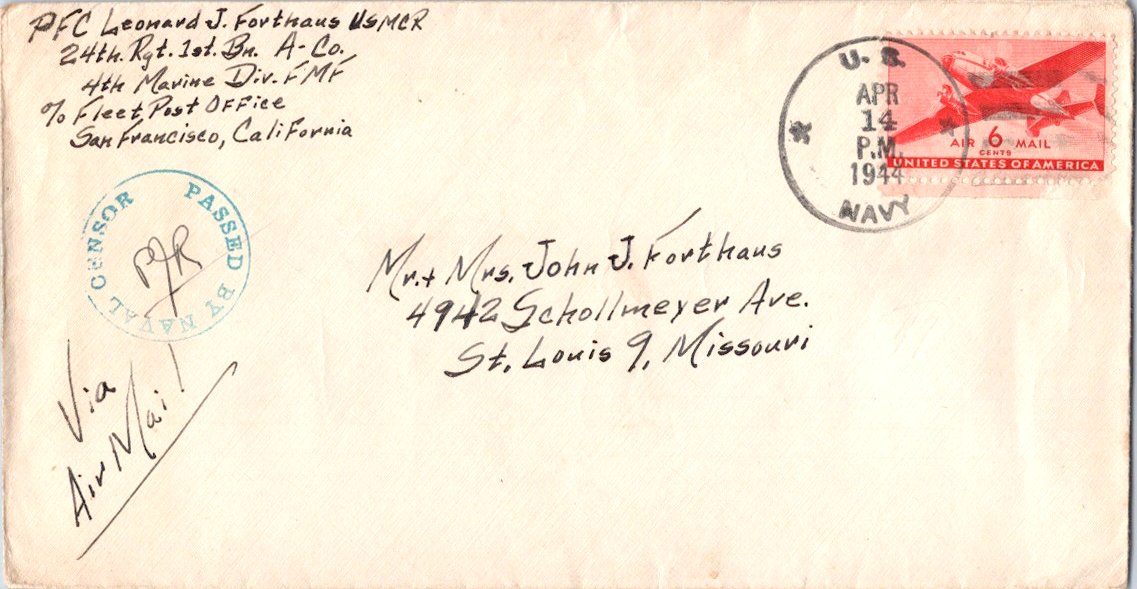 PFC Leonard J. Forthaus USMCR
24th. Rgt. 1st. Bn. A-Co.
4th Marine Div. FMF
℅ Fleet Post Office
San Francisco, California
U. S.
APR
14
P.M.
1944
NAVY
AIR 6 MAIL
CENTS
UNITED STATES OF AMERICA
PASSED BY NAVAL CENSOR
Mr. + Mrs. John J. Forthaus
4942 Schollmeyer Ave.
St. Louis 9, Missouri
Via
Air Mail